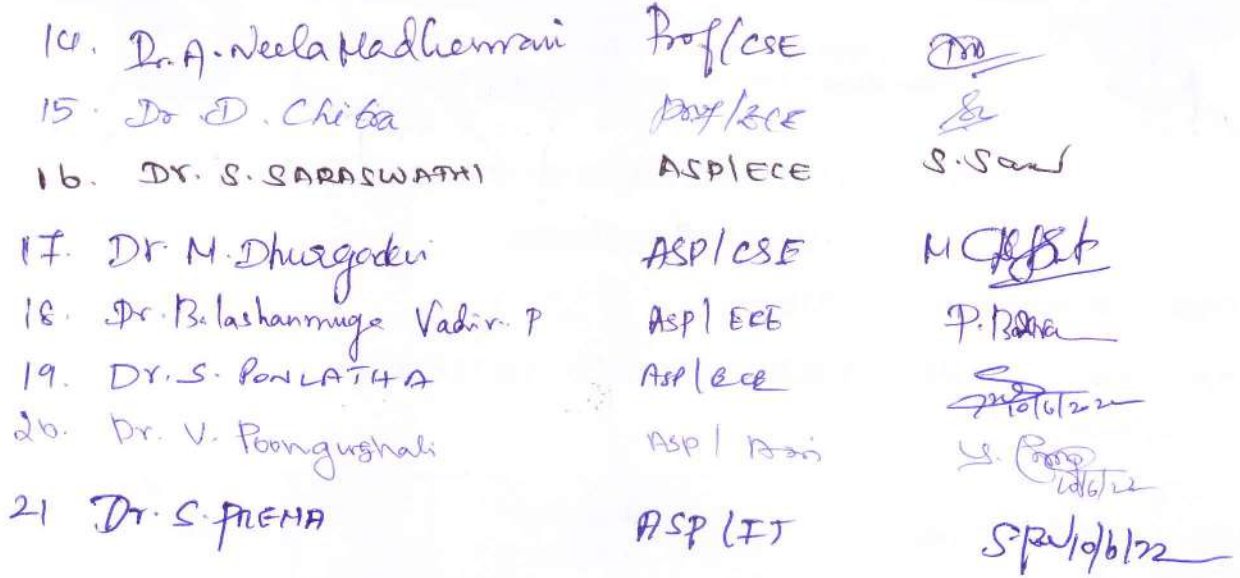 14. Dr. A. Neela Madheswari Prof/CSE
15. Dr. D. Chitra Prof/ECE
16. Dr. S. SARASWATHI ASP/ECE S. Saras
17. Dr. M. Dhurgadevi ASP/CSE M
18. Dr. Balashanmuga Vadiv. P ASP/ECE P. Bala
19. Dr. S. PONLATHA ASP/ECE 10/6/2022
20. Dr. V. Poongurghali ASP/ V. 10/6/22
21 Dr. S. PREMA ASP/IT 10/6/22